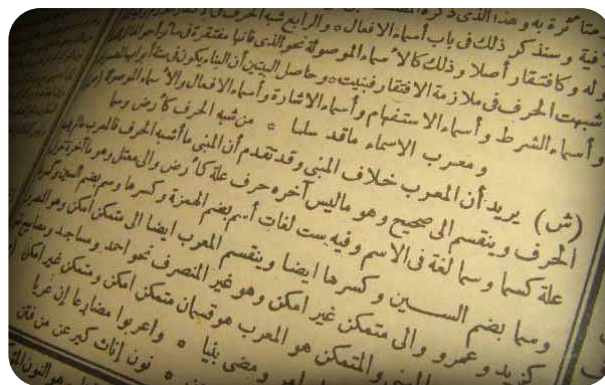 متأثرة به وهذا الذى ذكره
فية وسنذكر ذلك فى باب أسماء الافعال * والرابع شبه الحرف فى
وله وكافتقار أصلا وذلك كالاسماء الموصولة نحو الذى فانها مفتقرة فى سائر أحوالها
شبهت الحرف فى ملازمة الافتقار فبنيت * وحاصل البيتين أن البناء يكون فى ستة أبواب
وأسماء الشرط وأسماء الاستفهام وأسماء الاشارة وأسماء الافعال والاسماء الموصولة
ومعرب الاسماء ماقد سلما * من شبه الحرف كأرض وسما
(ش) يريد أن المعرب خلاف المبنى وقد تقدم أن المبنى ما أشبه الحرف فالمعرب مالم يشبه
الحرف وينقسم الى صحيح وهو ماليس آخره حرف علة كأرض والى معتل وهو ما آخره حرف
علة كسما وسما لغة فى الاسم وفيه ست لغات أسم بضم الهمزة وكسرها وسم بضم السين وكسرها
وسما بضم السين وكسرها ايضا وينقسم المعرب ايضا الى متمكن امكن وهو المنصرف
كزيد وعمرو والى متمكن غير امكن وهو غير المنصرف نحو احمد ومساجد ومصابيح
المبنى والمتمكن هو المعرب وهو قسمان متمكن امكن ومتمكن غير امكن
امر ومضى بنيا * وأعربوا مضارعا إن عريا
نون إناث كيرعن من فتن